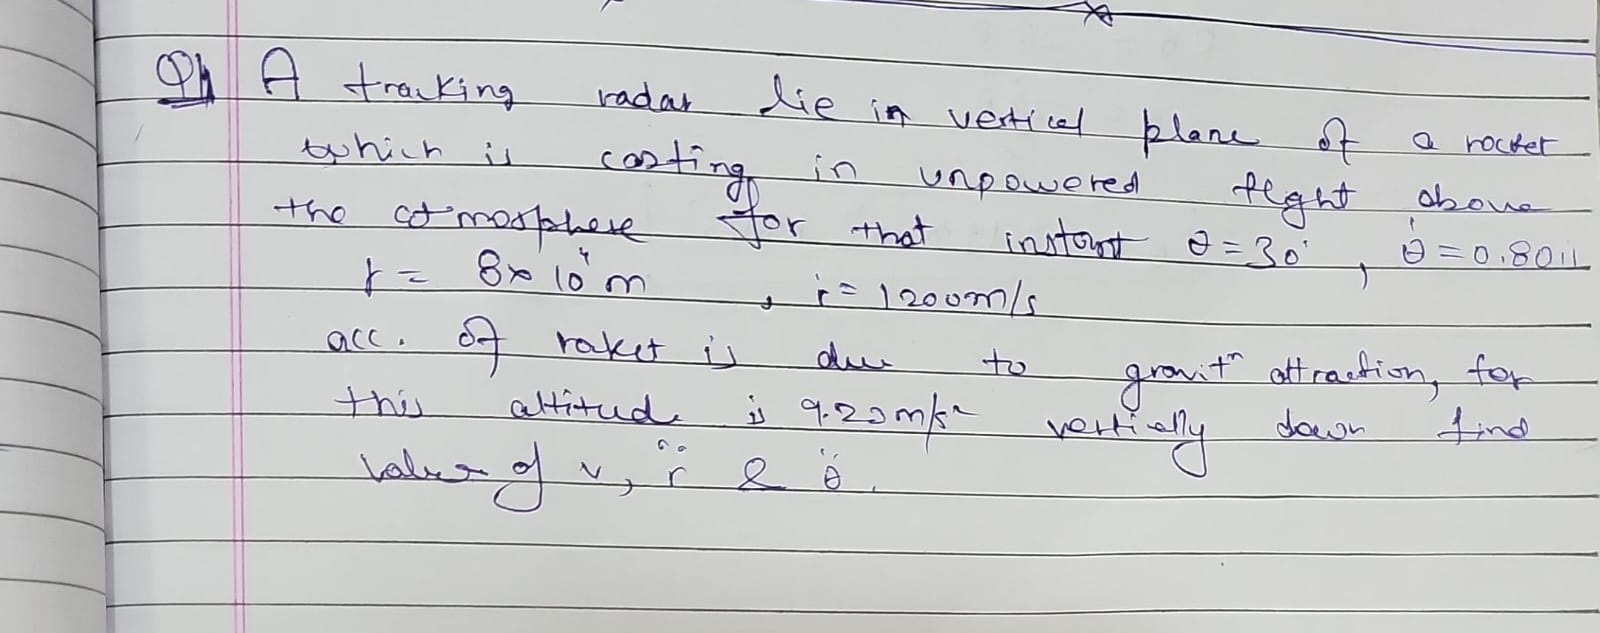 Q1 A tracking radar lie in vertical plane of a rocket
which is costing in unpowered flght above
the atmosphere for that instant θ = 30°, θ̇ = 0.80
r = 8×10⁴ m , ṙ = 1200 m/s
acc. of roket is due to gravitⁿ attraction, for
this altitude is 9.20 m/s² vertically down find
value of v, r̈ & θ̈.